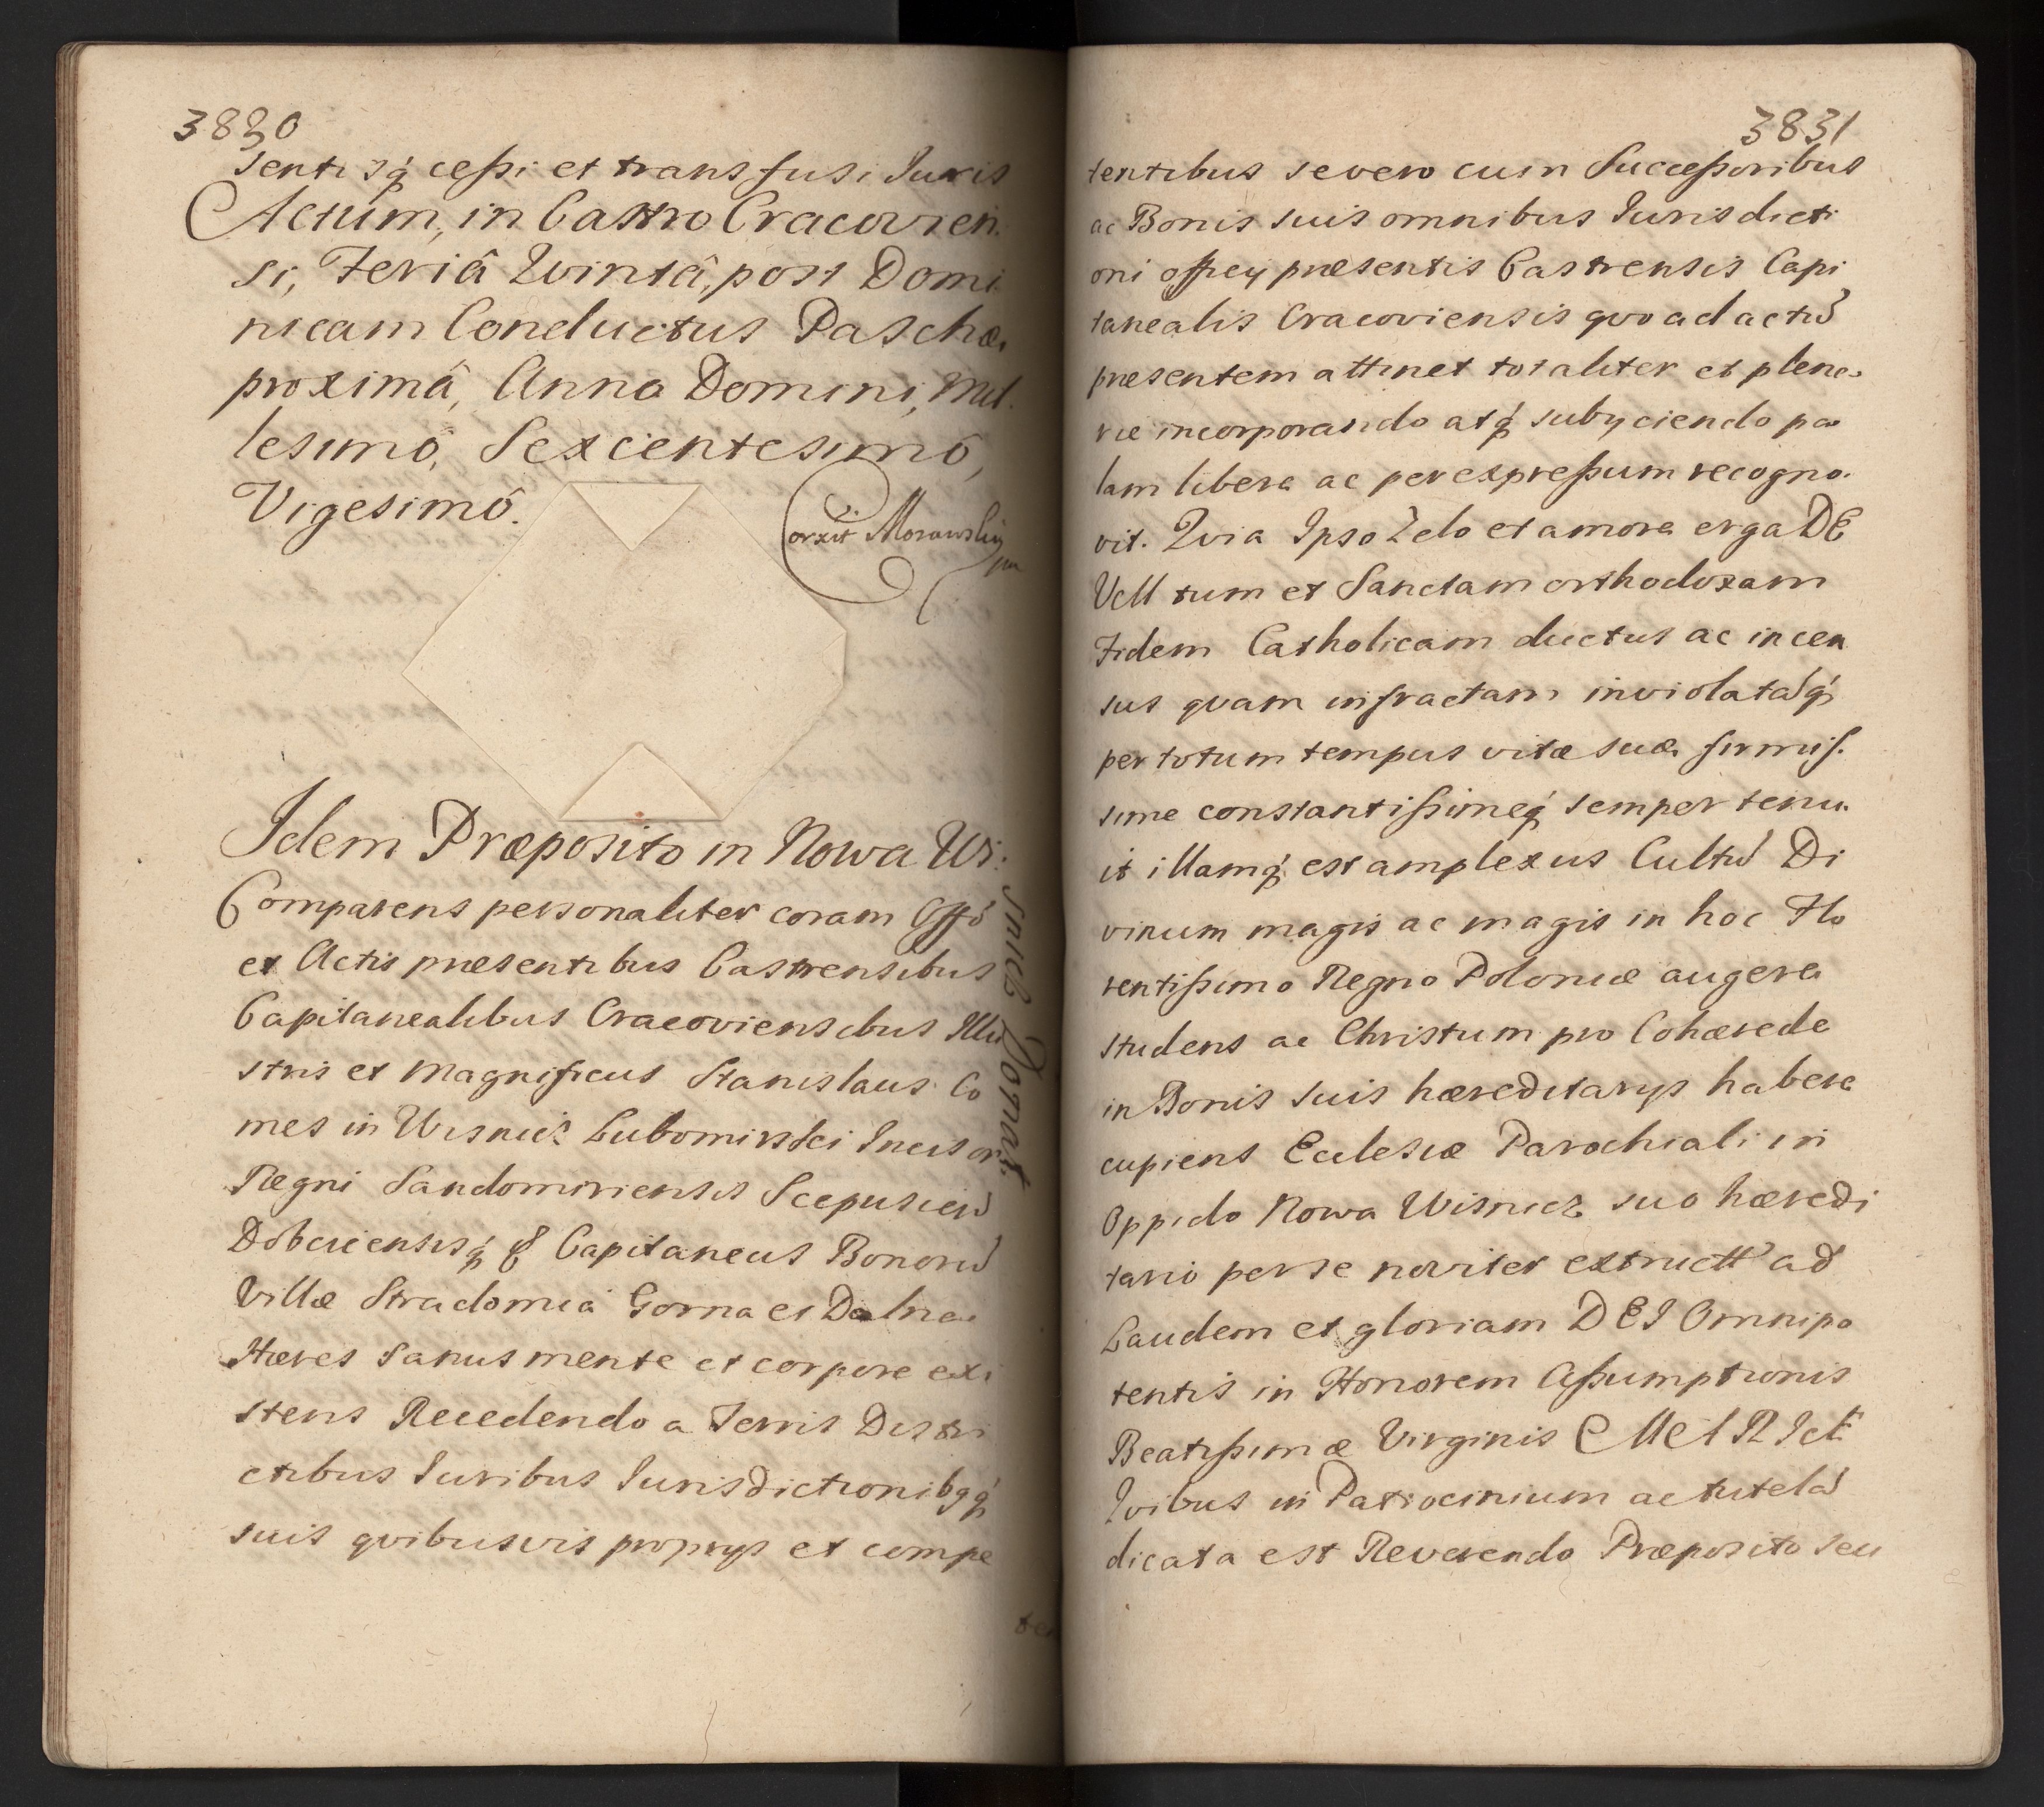 3830
sentisq́ cessi et transfusi Iuris
Actum, in Castro Cracovien
si, Feriâ Qvintâ, post Domi
nicam Conductus Paschæ
proximâ, Anno Domini, Mil
lesimô, Sexcentesimô,
Vigesimô.
Corxit Morawskij
mp
Idem Præposito in Nowa Wi:
snicz Donat:
Comparens personaliter coram Offō
et Actis præsentibus Castrensibus
Capitanealibus Cracoviensibus Illu
stris et Magnificus Stanislaus Co
mes in Wisnicz Lubomirski Incisor
Regni Sandomiriensis Scepusien̄
Dobcicensisq́ & Capitaneus Bonorū
Villæ Stradomia Gorna et Dolna
Hæres sanus mente et corpore exi
stens Recedendo a Terris Distri
ctibus Iuribus Iurisdictionibq́
suis qvibusvis proprys et compe
ten
3831
tentibus se vero cum Successoribus
ac Bonis suis omnibus Iurisdicti
oni officy præsentis Castrensis Capi
tanealis Cracoviensis qvo ad actū
præsentem attinet totaliter et plena
rie incorporando atq́ subyciendo pa
lam libere ac per expressum recogno
vit. Qvia Ipso Zelo et amore erga DE
Vm tum et Sanctam orthodoxam
Fidem Catholicam ductus ac incen
sus qvam infractam inviolatāq́
per totum tempus vitæ suæ firmis
sime constantissimeq́ semper tenu
it illamq́ est amplexus Cultū Di
vinum magis ac magis in hoc Flo
rentissimo Regno Poloniæ augere
studens ac Christum pro Cohærede
in Bonis suis hæreditarys habere
cupiens Ecclesiæ Parochiali in
Oppido Nowa Wisnicz suo hæredi
tario per se noviter extructæ ad
Laudem et gloriam DEI Omnipo
tentis in Honorem Assumptionis
Beatissimæ Virginis MARIÆ
Qvibus in Patrocinium ac tutelā
dicata est Reverendo Præposito seu